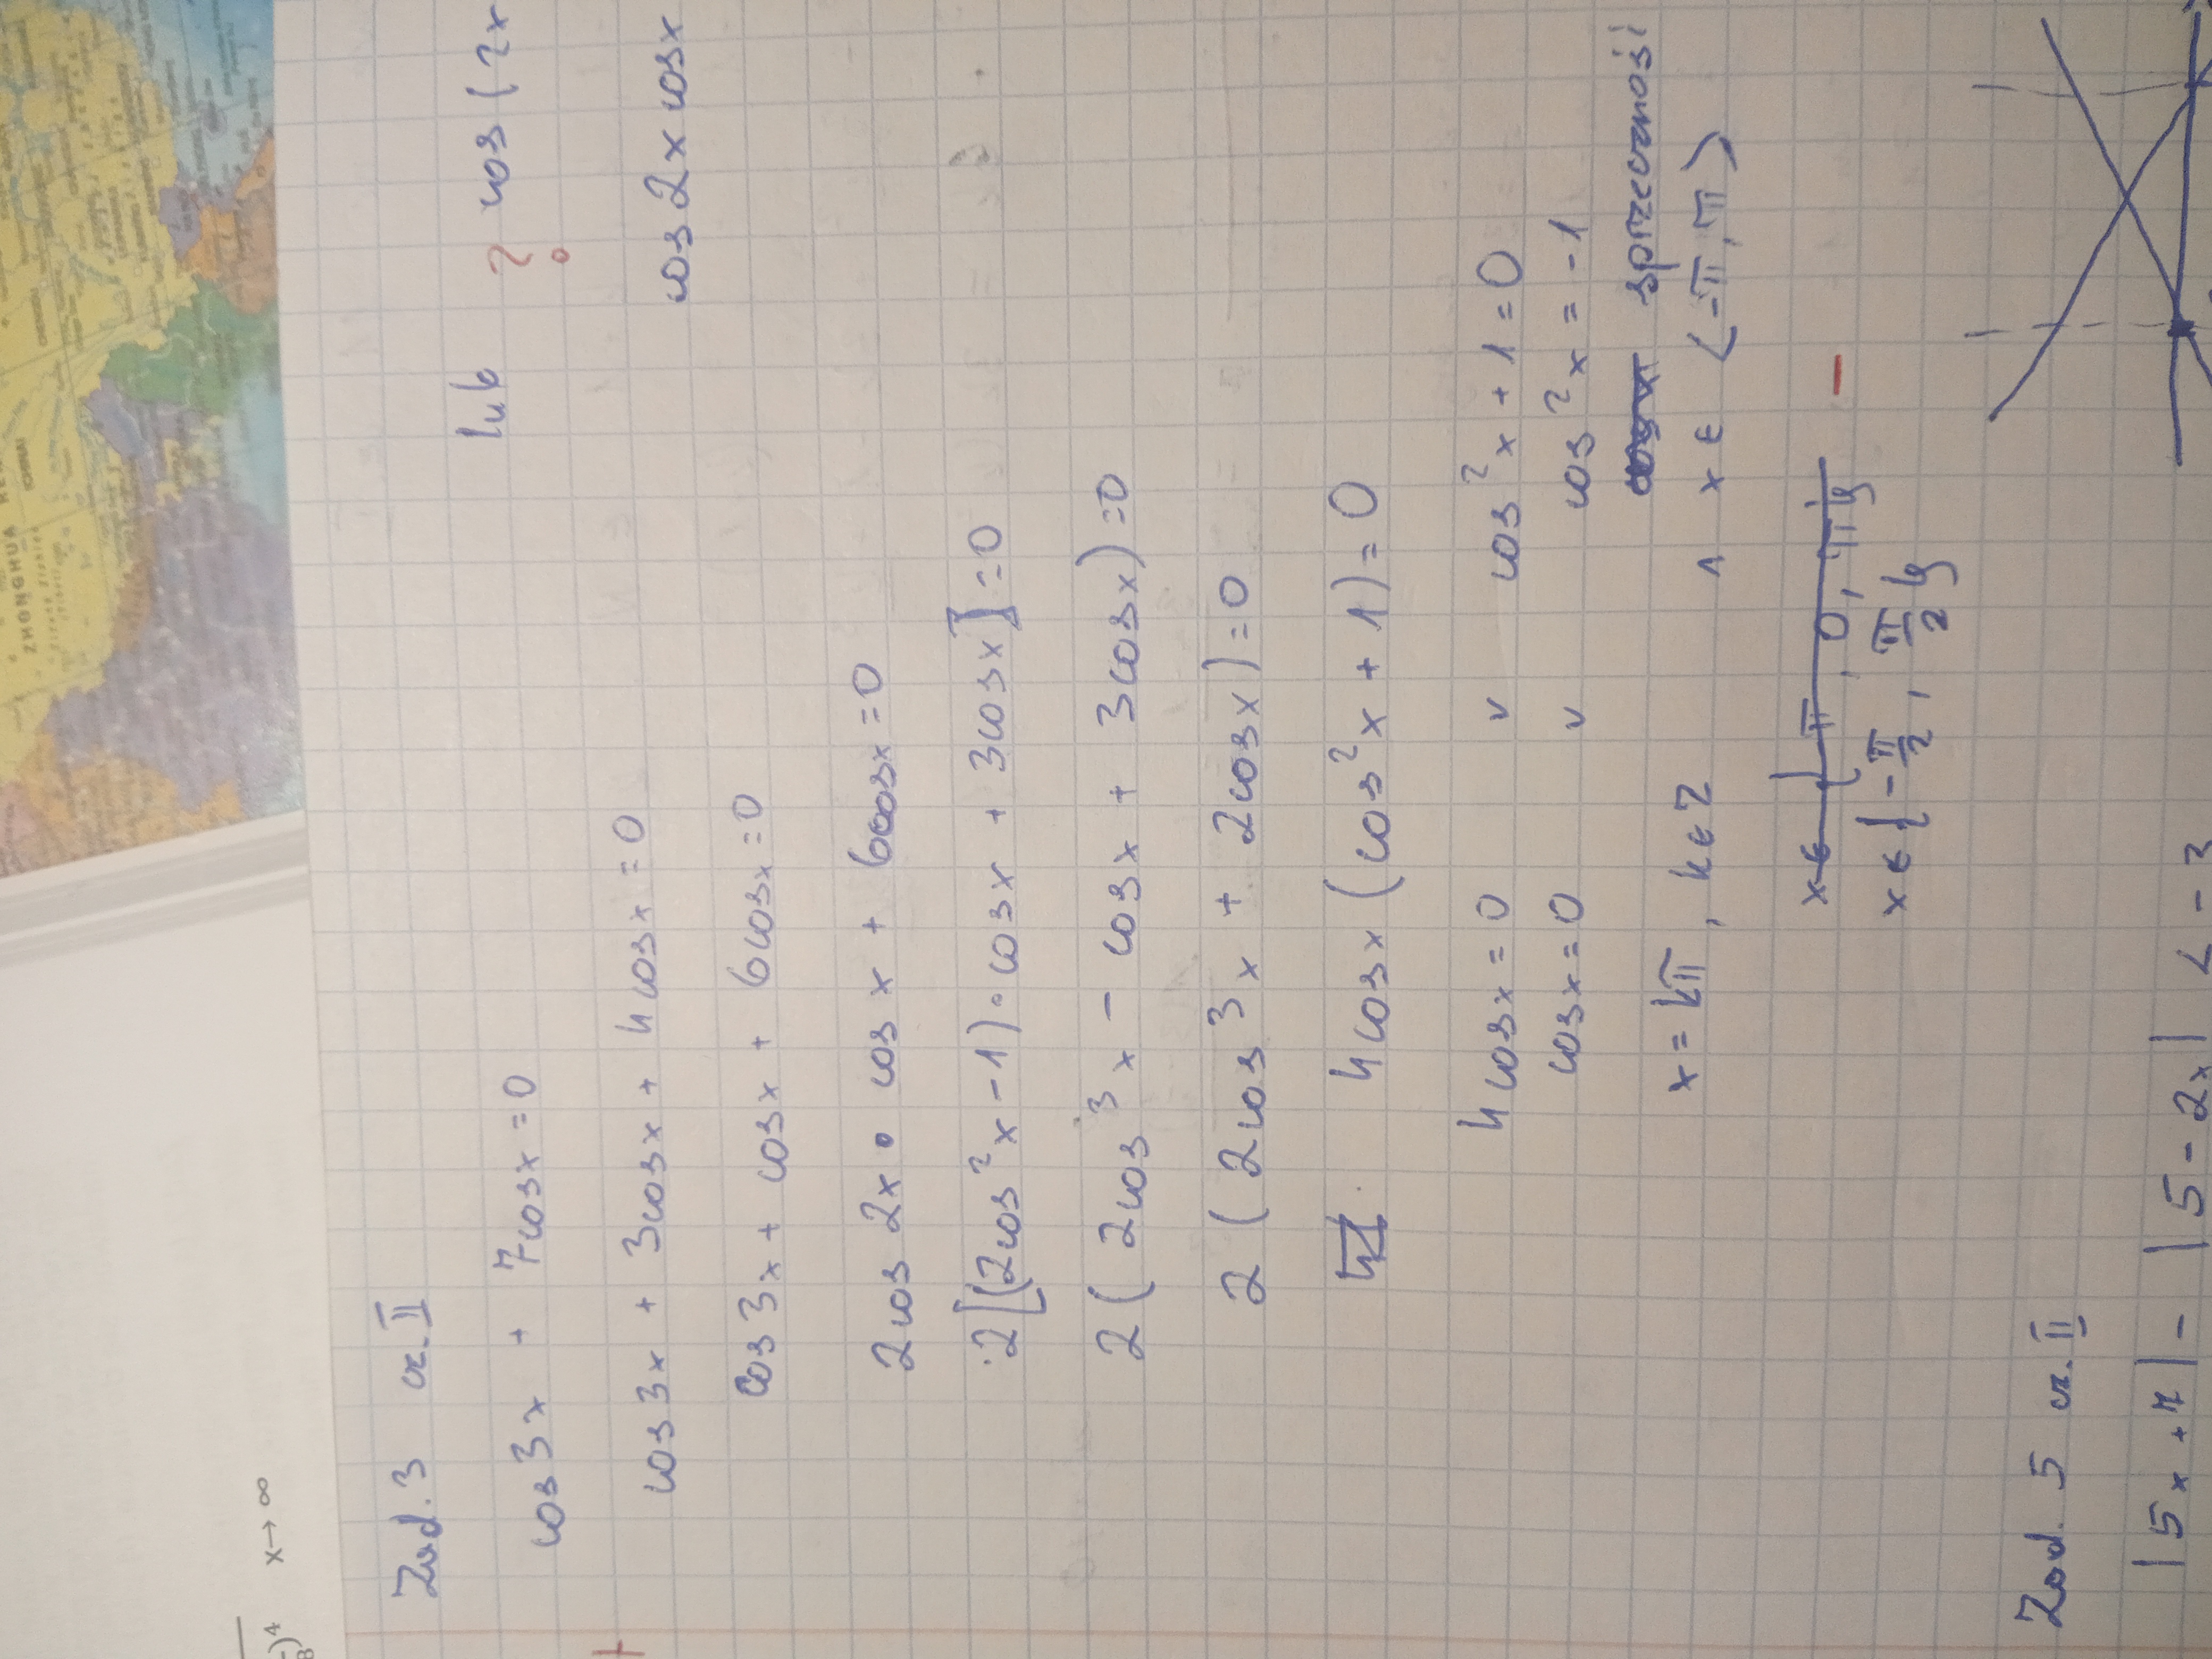 x→∞
Zad. 3 cz. II
cos3x + 7cosx=0 lub ? cos(2x
cos3x + 3cosx + 4cosx=0 cos2x cosx
cos3x + cosx + 6cosx=0
2cos2x • cosx + 6cosx=0
2[(2cos²x-1)•cosx + 3cosx]=0
2(2cos³x - cosx + 3cosx)=0
2(2cos³x + 2cosx)=0
4cosx(cos²x+1)=0
4cosx=0 v cos²x+1=0
cosx=0 v cos²x=-1
sprzeczność
x=kπ, k∈Z ∧ x∈<-π,π)
x∈{-π, 0, π} -
x∈{-π/2, π/2}
Zad. 5 cz. II
|5x+7| - |5-2x| < -3
ZHONGHUA